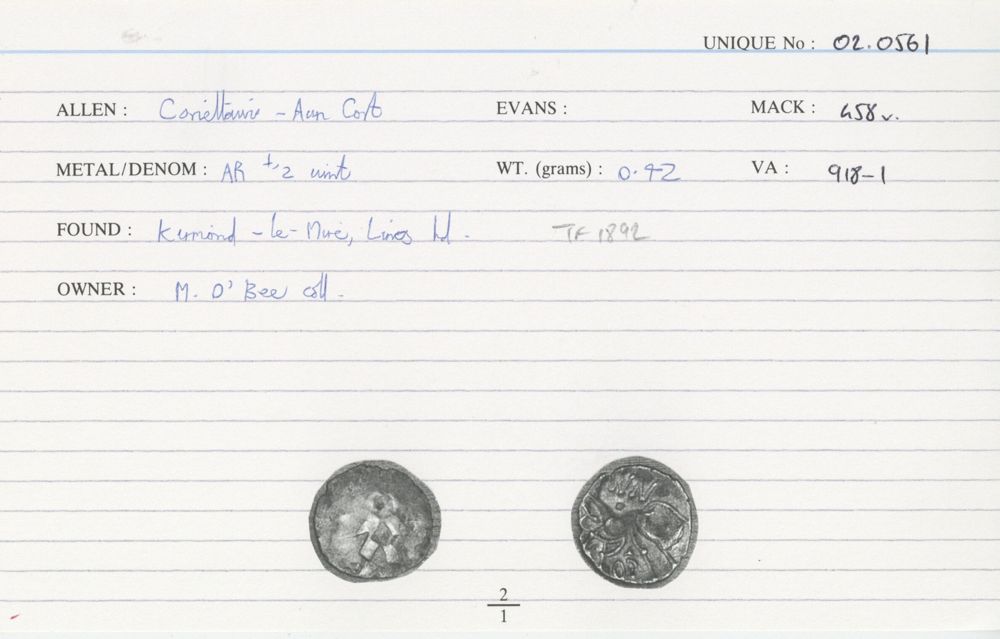 UNIQUE No : 02.0561
ALLEN : Corieltauvi - Aun Cost EVANS : MACK : 458 v.
METAL/DENOM : AR 1/2 unit WT. (grams) : 0.42 VA : 918-1
FOUND : Kirmond - le - Mire, Lincs TF 1892
OWNER : M. O' Bee coll.
2
1